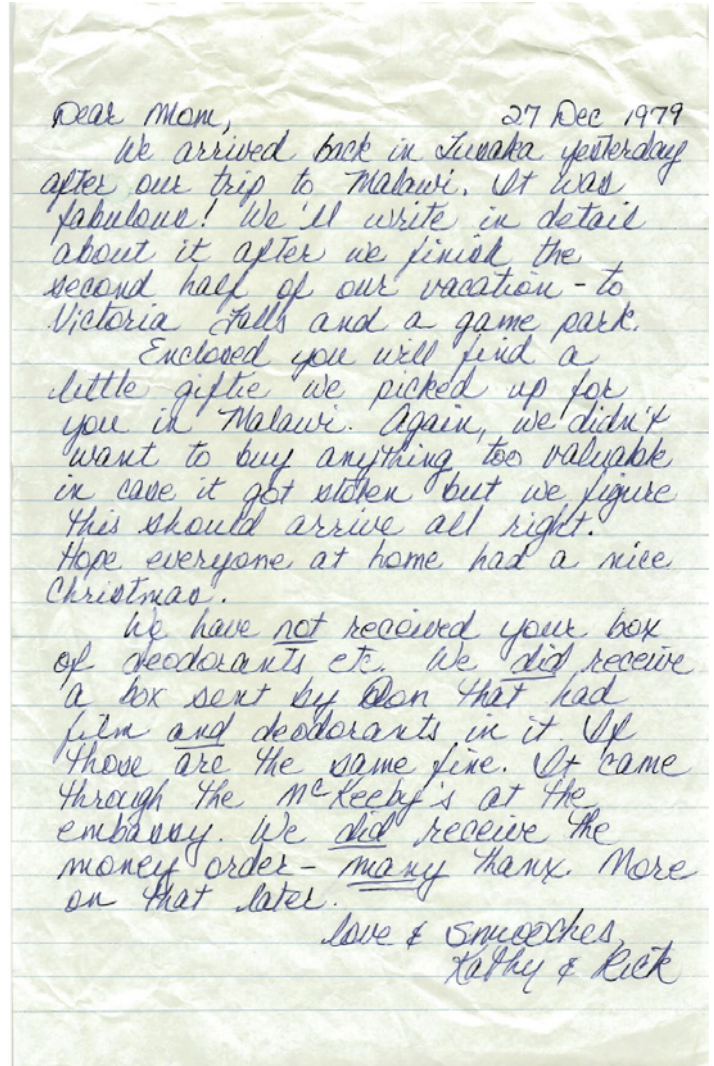 Dear Mom, 27 Dec 1979
We arrived back in Lusaka yesterday
after our trip to Malawi. It was
fabulous! We'll write in detail
about it after we finish the
second half of our vacation - to
Victoria Falls and a game park.
Enclosed you will find a
little giftie we picked up for
you in Malawi. Again, we didn't
want to buy anything too valuable
in case it got stolen but we figure
this should arrive all right.
Hope everyone at home had a nice
Christmas.
We have not received your box
of deodorants etc. We did receive
a box sent by Don that had
film and deodorants in it. If
those are the same fine. It came
through the McKeeby's at the
embassy. We did receive the
money order - many thanx. More
on that later.
Love & Smooches,
Kathy & Rick